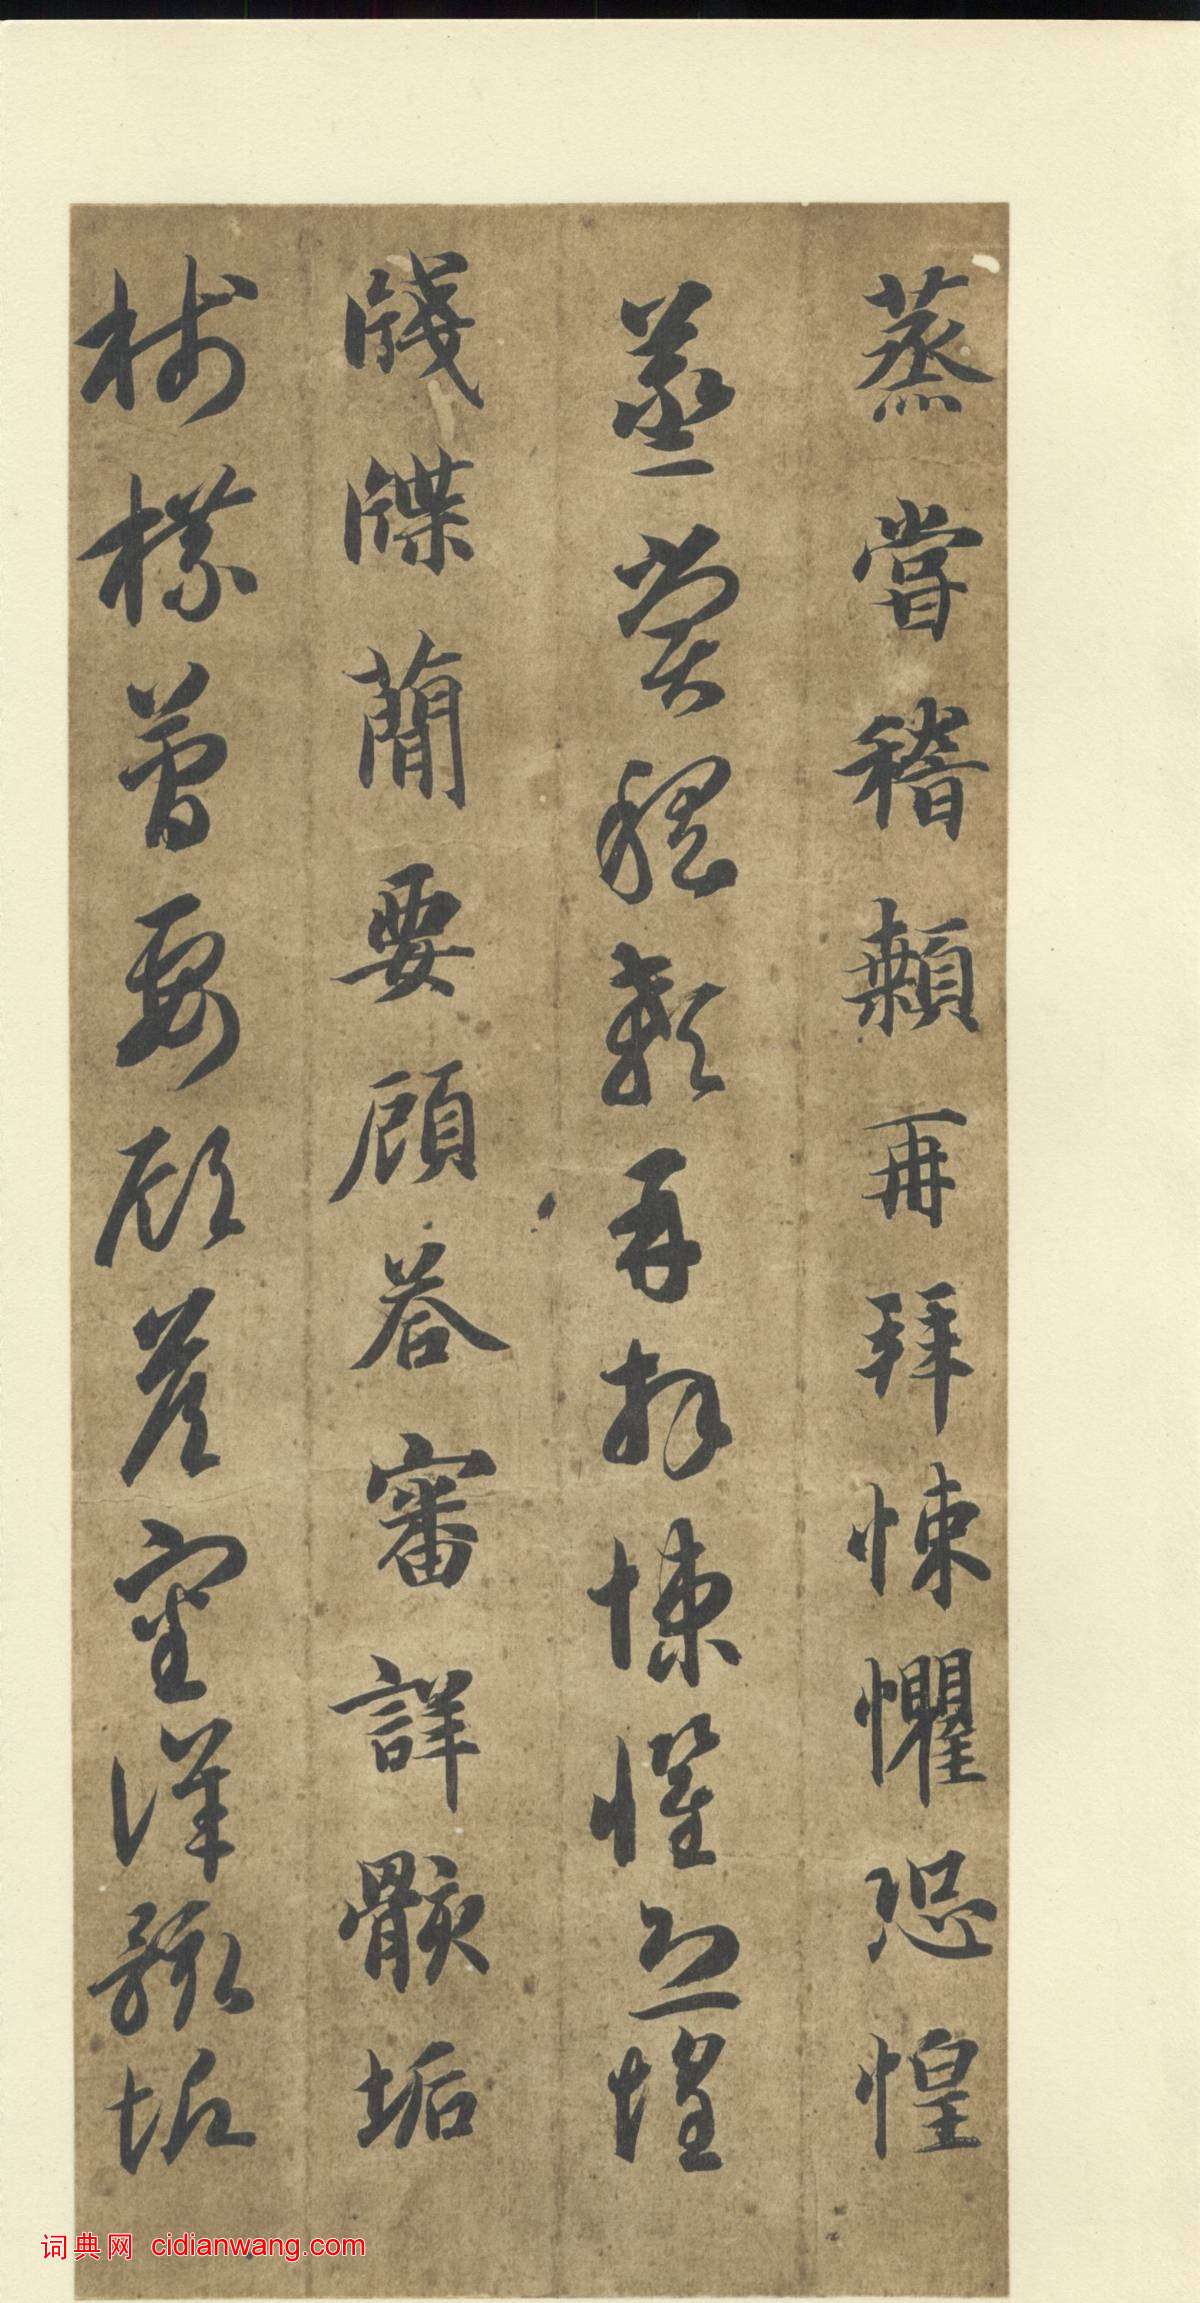 蒸嘗稽顙再拜悚懼恐惶
蒸嘗稽顙再拜悚懼恐惶
牋牒蕳要顧荅審詳骸垢
牋牒蕳要顧荅審詳骸垢
词典网 cidianwang.com